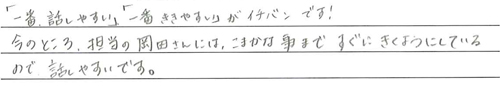 「一番、話しやすい」「一番ききやすい」がイチバンです!
今のところ、担当の岡田さんには、こまかな事まですぐにきくようにしている
ので、話しやすいです。